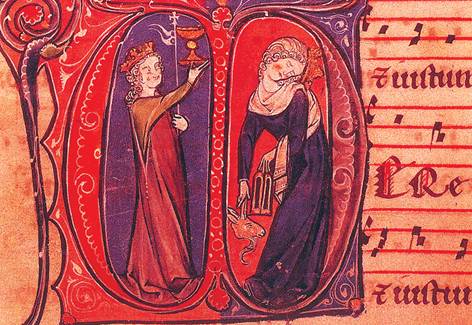 ⁊ iustum
PRe
⁊ iustum